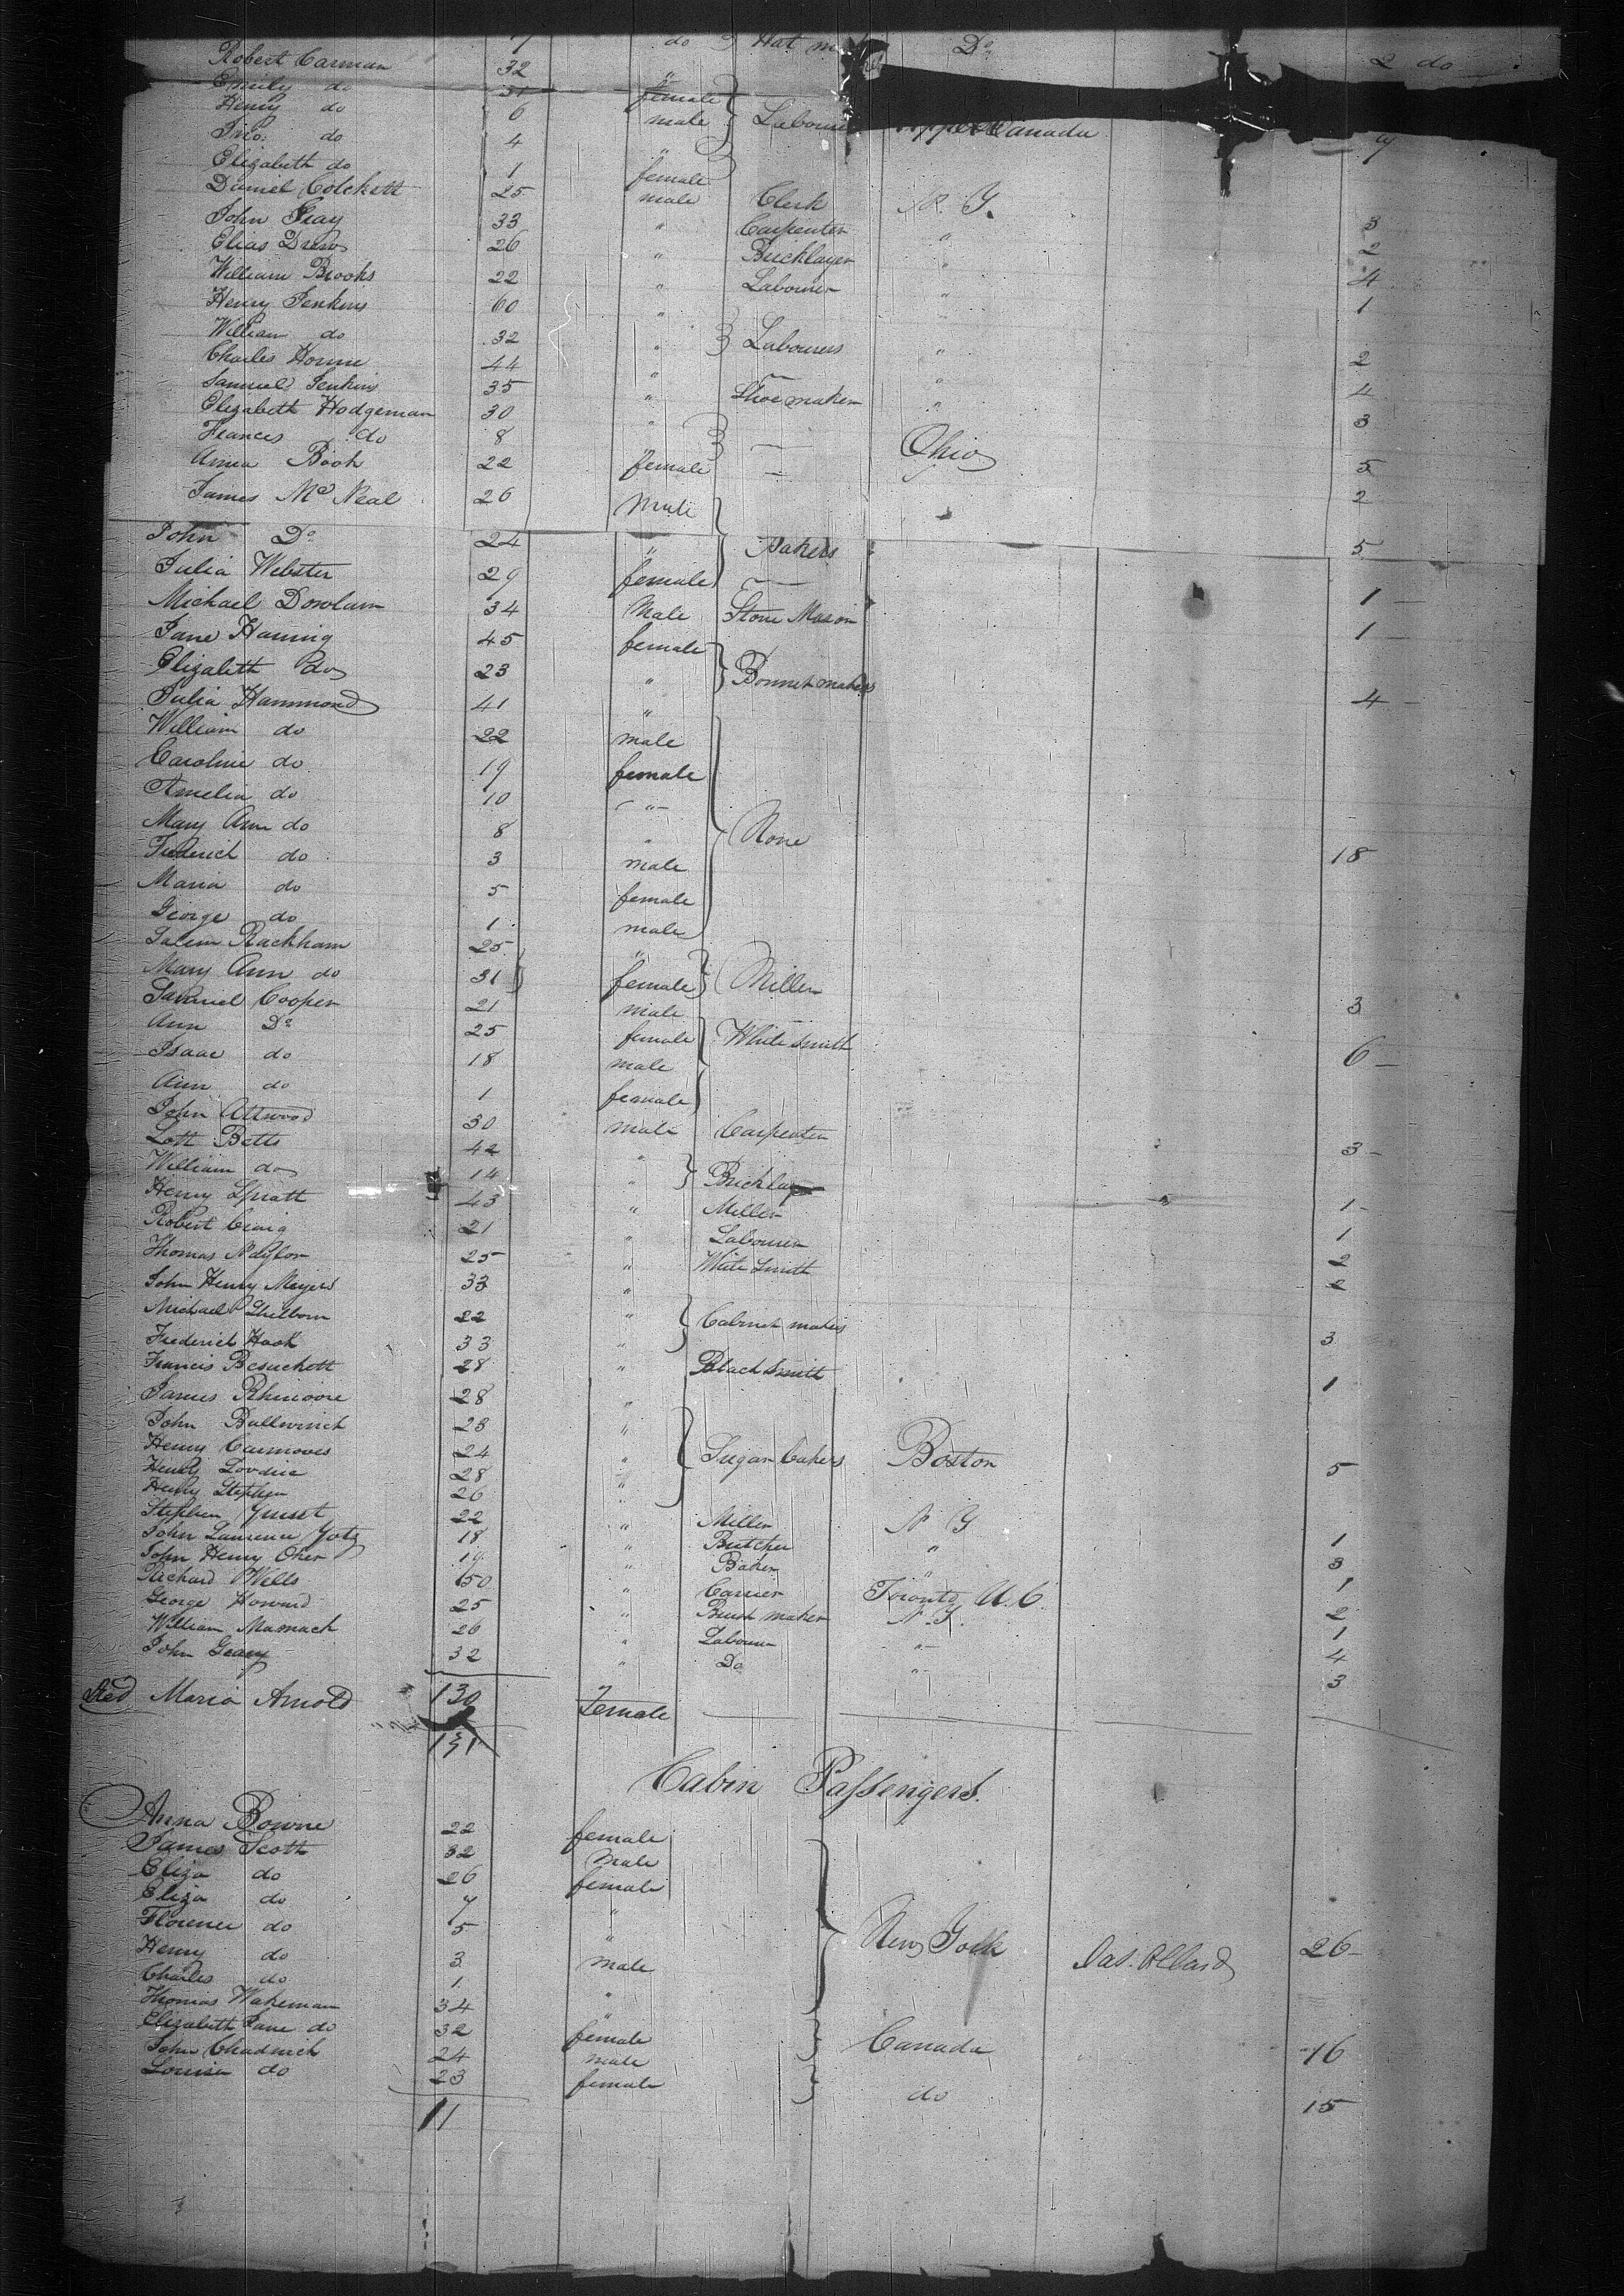 7 do Hat D<sup>o</sup>
Robert Carman 32 " 2 do
Emily do 31 female
Henry do 6 male Labourer Upper Canada 7
Jno. do 4 "
Elizabeth do 1 female
Daniel Colckett 25 male Clerk N. Y. 3
John Gray 33 " Carpenter " 2
Elias Drew 26 " Bricklayer " 4
William Brooks 22 " Labourer " 1
Henry Jenkins 60 "
William do 32 " Labourers " 2
Charles Horne 44 " — " 4
Samuel Jenkins 35 " Shoe maker " 3
Elizabeth Hodgeman 30 "
Frances do 8 — Ohio 5
Anna Book 22 female — 2
James Mc Neal 26 Male
John Do 24 " Bakers 5
Julia Webster 29 female — 1 —
Michael Dowlam 34 Male Stone Mason 1 —
Jane Haming 45 female
Elizabeth do 23 " Bonnet makers 4 —
Julia Hammond 41 "
William do 22 male
Caroline do 19 female
Amelia do 10 — " —
Mary Ann do 8 " None
Frederich do 3 male 18
Maria do 5 female
George do 1 male
Rackham 25 "
Mary Ann do 31 female Miller 3
Samuel Cooper 21 male
Ann Do 25 female White Smith
Isaac do 18 male 6 —
Ann do 1 female
John Attwood 30 male Carpenter 3 —
Lott Betts 42 "
William do 14 " Bricklayer 1 —
Henry Spratt 43 " Miller 1
Robert Craig 21 " Labourer 2
Thomas Naylor 25 " White Smith 2
John Henry Meyers 33 "
Michael Shelborn 22 " Cabinet makers 3
Frederick Hook 33 "
Francis Besuchett 28 " Black Smith 1
James Rhinoore 28 "
John Bullwinch 23 "
Henry Carmoves 24 " Sugar bakers Boston 5
Henry Lovdie 28 "
Henry Stephen 26 "
Stephen 22 " Miller N Y 1
John Laurence Yotz 18 " Butcher " 3
John Henry Oker 19 " Baker " 1
Richard Wells 50 " Carrier Toronto U. C. 2
George Howard 25 " Brush maker N. Y. 1
William Mamach 26 " Labourer " 4
John Geary 32 " Do " 3
Maria Arnold 130 Female
131
Cabin Passengers.
Anna Bowne 22 female
James Scott 32 Male
Eliza do 26 female
Eliza do 7 "
Florence do 5 " New York 26 —
Henry do 3 male
Charles do 1 "
Thomas Wakeman 34 "
Elizabeth Jane do 32 female Canada 16
John Chadwick 24 male
Louisa do 23 female do 15
11